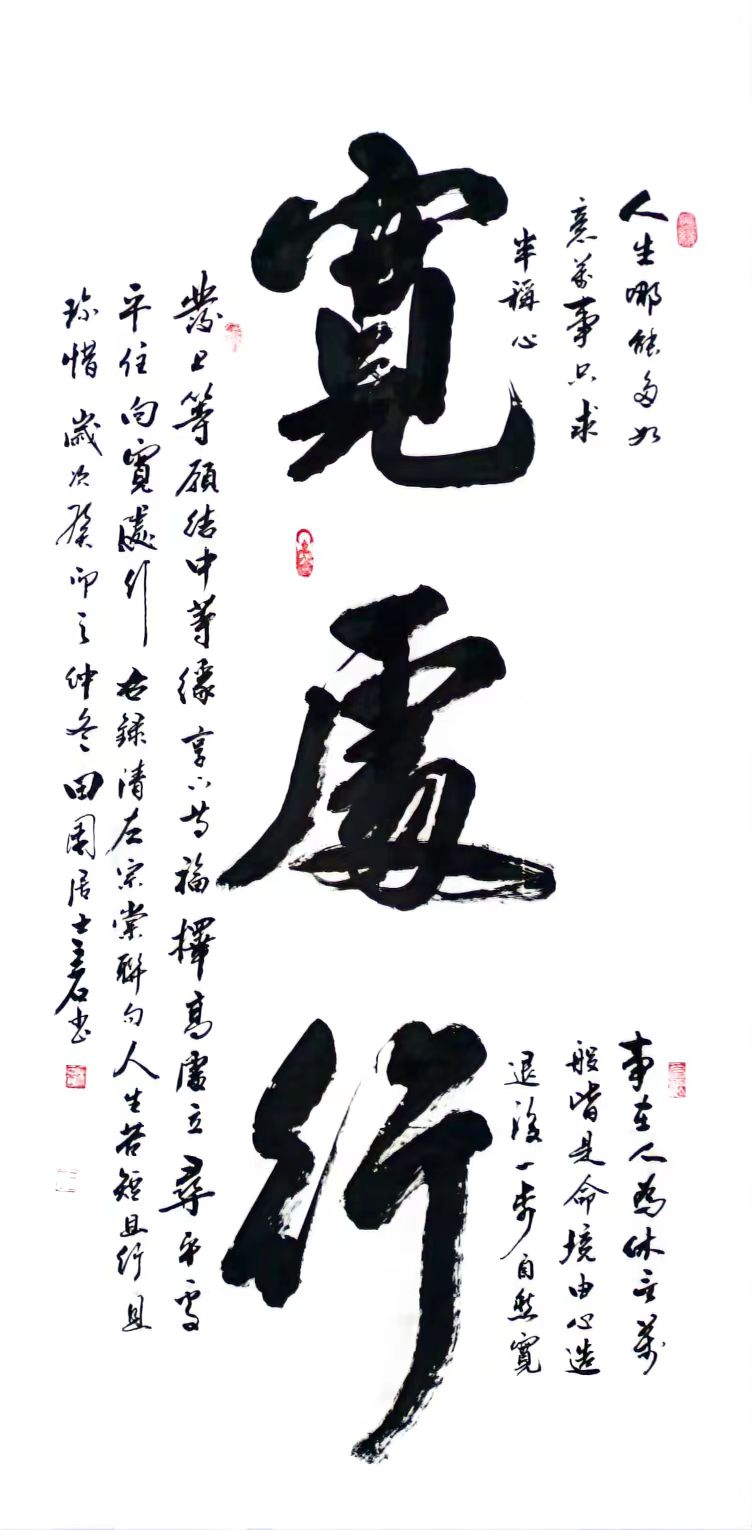 人生哪能多如
意萬事只求
半稱心
寬處行
事在人為休言萬
般皆是命境由心造
退後一步自然寬
發上等願結中等緣享下等福擇高處立尋平處
平住向寬處行 右錄清左宗棠聯句人生苦短且行且
珍惜 歲次癸卯之仲冬田園居士書